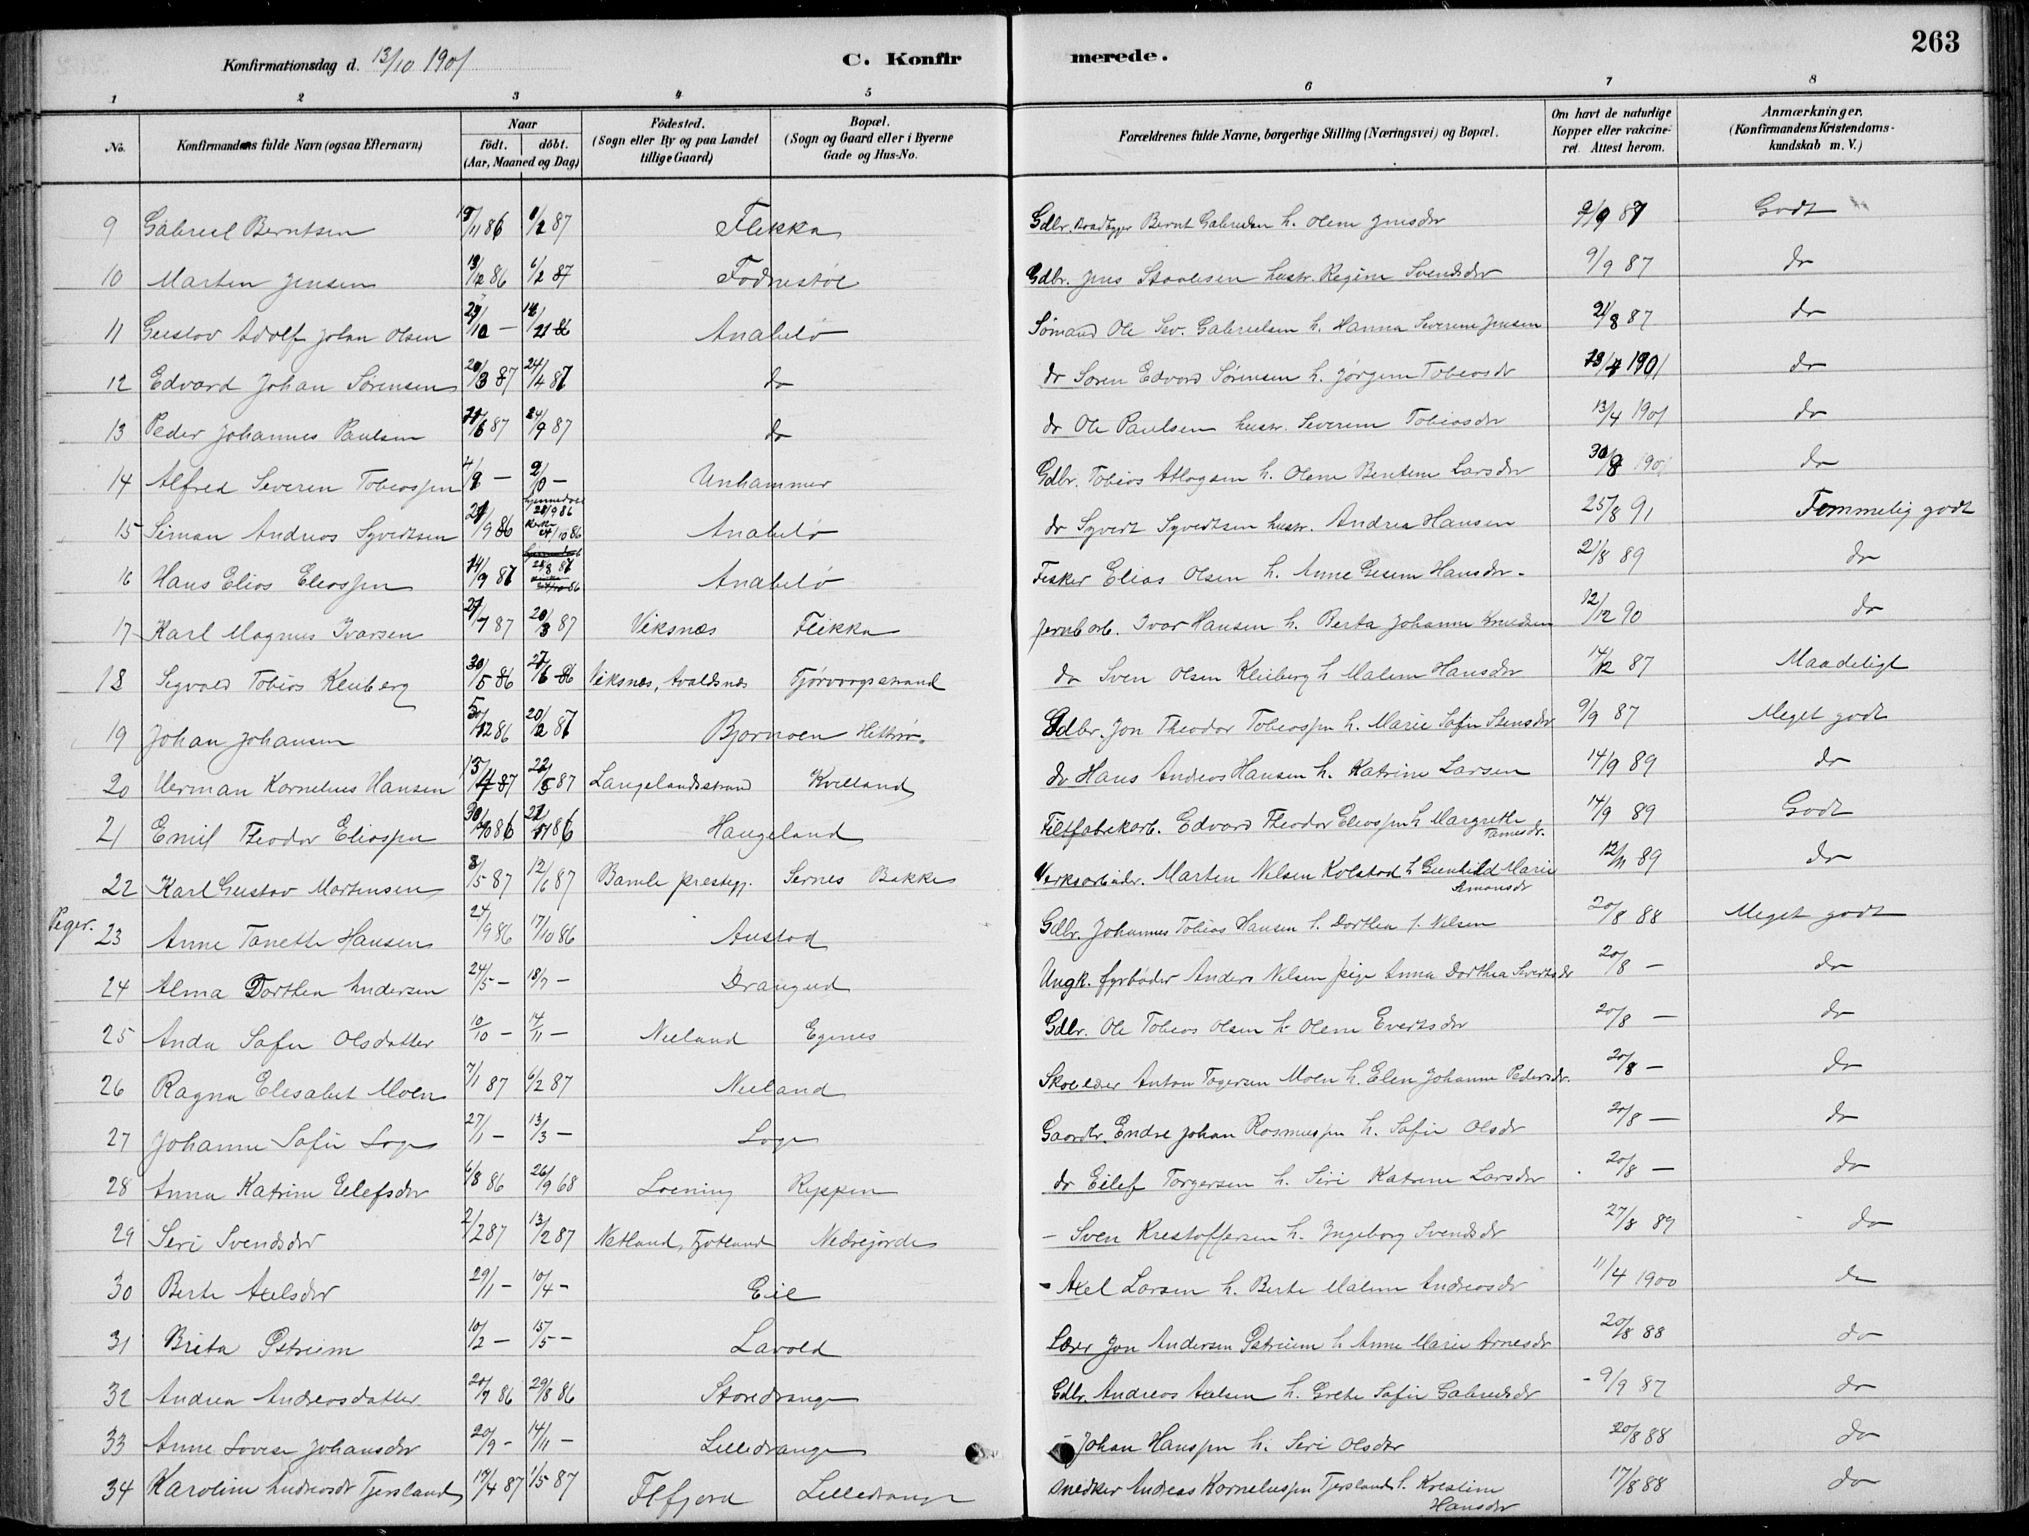 263
Konfirmationsdag d. 13/10 1901
C. Konfirmerede.
1 2 3 4 5 6 7 8
No. Konfirmandens fulde Navn (ogsaa Efternavn) Naar født. døbt. (Aar, Maaned og Dag) Fødested. (Sogn eller By og paa Landet tillige Gaard) Bopæl. (Sogn og Gaard eller i Byerne Gade og Hus-No. Forældrenes fulde Navne, borgerlige Stilling (Næringsvei) og Bopæl. Om havt de naturlige Kopper eller vakcineret. Attest herom. Anmærkninger, (Konfirmandens Kristendomskundskab m. V.)
9 Gabriel Berntsen 86 87 Flikka Gdbr. Baadbygger Bernt Gabrielsen h. Olene Jensdr 2/9 87 Godt
10 Marten Jensen 86 6/2 87 Fodnestøl Gdbr. Jens Staalesen hustr. Regine Svendsdr 9/9 87 do
11 Gustav Adolf Johan Olsen Anabelø Sømand Ole Sev. Gabrielsen h. Hanna Severine Jensen 21/8 87 do
12 Edvard Johan Sørensen 20/3 87 24/4 87 do do Soren Edvard Sørensen h. Jørgine Tobiasdr 1901 do
13 Peder Johannes Paulsen 87 24/9 87 do do Ole Paulsen hustr. Severine Tobiasdr 13/4 1901 do
14 Alfred Severin Tobiassen Unhammer Gdbr. Tobias Atlagsen h. Olene Bentine Larsdr 30/8 1901 do
15 Siman Andreas Syvertsen 21/9 86 hjemmedøbt 28/9 86 24/10 86 Anabelø do Syvert Syvertsen hustr. Andrea Hansen 25/8 91 Temmelig godt
16 Hans Elias Eliassen 87 28/8 87 Anabelø Fisker Elias Olsen h. Anne Gesine Hansdr. 21/8 89 do
17 Karl Magnus Ivarsen 87 20/3 87 Viksnæs Flikka Jernb arb. Ivar Hansen h. Berta Johanne Knudsen 12/12 90 do
18 Sigvald Tobias Kleiberg 30/5 86 27/6 86 Viksnæs, Avaldsnæs Tjørvaagsstrand do Sven Olsen Kleiberg h Malene Hansdr 14/12 87 Maadeligt
19 Johan Johansen 5/12 86 20/2 87 Bjørnøen Hitterø. Gdbr. Jon Theodor Tobiassen h. Marie Sofie Stensdr 9/9 87 Meget godt
20 Herman Kornelius Hansen 87 22/5 87 Langelandsstrand Kvilland do Hans Andreas Hansen h. Katrine Larsen 14/9 89 do
21 Emil Theodor Eliassen 86 86 Haugeland Filtfabrikarb. Edvard Theodor Eliassen h Margrethe Tarnesdr. 14/9 89 Godt
22 Karl Gustav Mortensen 3/5 87 12/6 87 Bamle prestegj. Sernes Bakke Verksarbeider. Marten Nilsen Kolstad h Gunhild Marie Amonsdr 12/11 89 do
Piger.
23 Anne Tanette Hansen 24/9 86 17/10 86 Austad Gdbr. Johannes Tobias Hansen h. Dorthea f. Nilsen 20/8 88 Meget godt
24 Alma Dorthea Andersen 24/5 – 18/7 – Drangeid Ungk. fyrbøder Anders Nilsen pige Anna Dorthea Sivertsdr 20/8 – do
25 Anda Sofie Olsdatter 10/10 – 14/11 – Nuland Egenes Gdbr. Ole Tobias Olsen h Olene Evertsdr 20/8 – do
26 Ragna Elisabet Moen 7/1 87 6/2 87 Nuland Skolelærer Anton Togersen Moen h. Elen Johanne Pedersdr. 20/8 – do
27 Johanne Sofie Loge 27/1 – 13/3 – Loge Gaardbr. Endre Johan Rasmussen h. Sofie Olsdr 20/8 – do
28 Anna Katrine Eilefsdr 6/8 86 26/9 68 Loening Reppen do Eilef Torgersen h. Siri Katrine Larsdr 20/8 – do
29 Siri Svendsdr 2/2 87 13/2 87 Netland, Fjotland Nedrejorde – Sven Kristoffersen h. Ingeborg Svendsdr 27/8 89 do
30 Berte Axelsdr 29/1 – 10/4 – Eie – Axel Larsen h. Berte Malene Andreasdr 11/4 1900 do
31 Brita Østreim 10/2 – 15/5 – Lavold Lærer Jon Andersen Østreim h Anne Marie Arnesdr 20/8 88 do
32 Andrea Andreasdatter 20/7 86 29/8 86 Storedrange Gdbr. Andreas Axelsen h. Grete Sofie Gabrielsdr 9/9 87 do
33 Anne Lovise Johansdr 20/9 – 14/11 – Lilledrange – Johan Hanssen h. Siri Olsdr 20/8 88 do
34 Karoline Andreasdr Tjersland 14/4 87 1/5 87 Flfjord Lilledrange Snedker Andreas Korneliussen Tjersland h. Kristine Hansdr 17/8 88 do